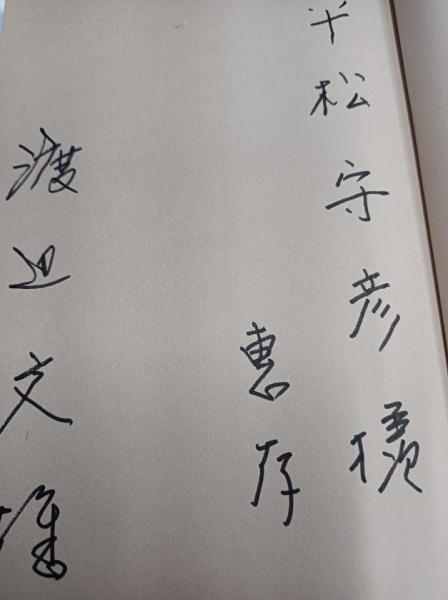 平松守彦様
恵存
渡辺文雄